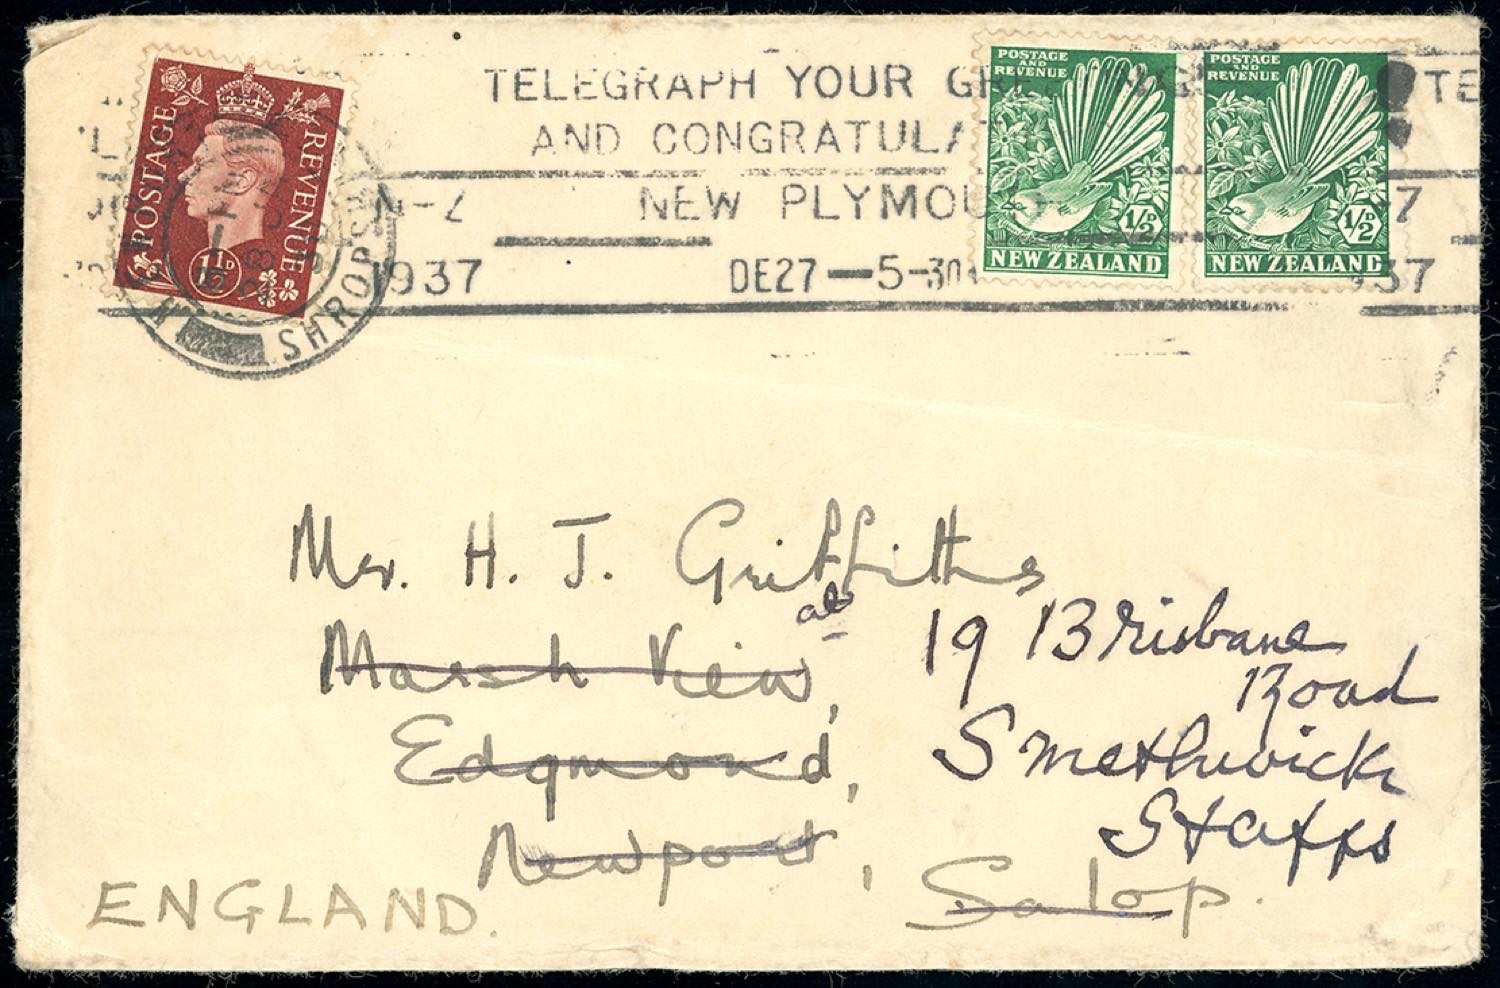 POSTAGE REVENUE
1½D
SHROPSHIRE
TELEGRAPH YOUR
AND CONGRATULA
N-Z NEW PLYMOU
1937 DE27—5-30
POSTAGE
AND
REVENUE
½D
NEW ZEALAND
POSTAGE
AND
REVENUE
½D
NEW ZEALAND
TE
37
Mr. H. J. Griffiths
at
Marsh View,
19 Brisbane
Road
Edgmond,
Smethwick
Staffs
Newport,
Salop.
ENGLAND.